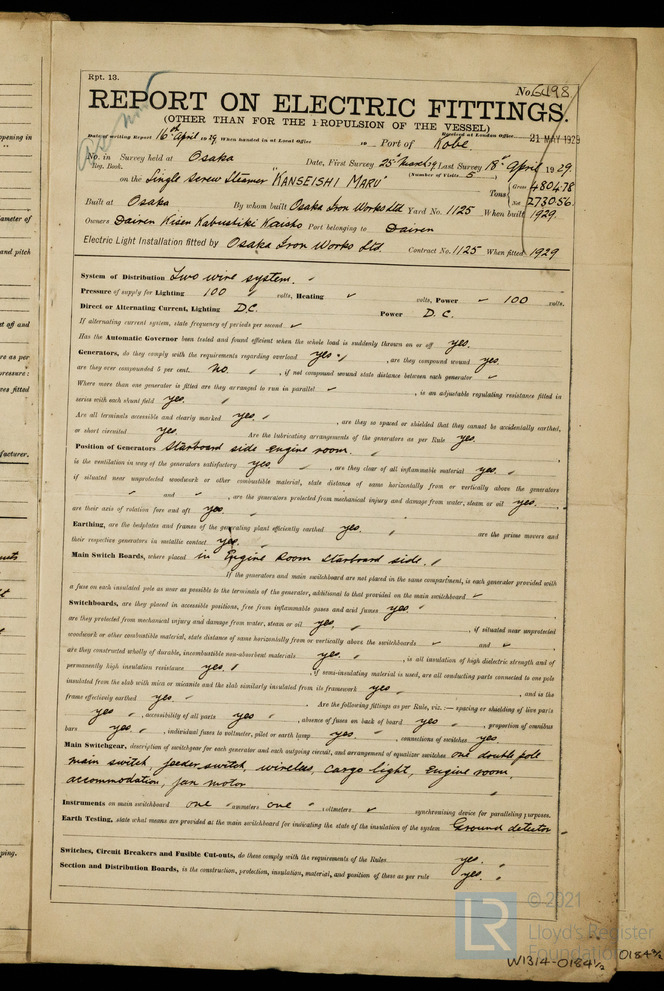 Rpt. 13.
No. 6498
REPORT ON ELECTRIC FITTINGS.
(OTHER THAN FOR THE PROPULSION OF THE VESSEL)
Date of writing Report 16th April 1929 When handed in at Local Office 19 Port of Kobe Received at London Office 21 MAY 1929
No. in Reg. Book. Survey held at Osaka Date, First Survey 25th March 29 Last Survey 18th April 1929.
(Number of Visits 5)
on the Single Screw Steamer "KANSEISHI MARU" Tons Gross 4804.78 Net 2730.56
Built at Osaka By whom built Osaka Iron Works Ltd Yard No. 1125 When built 1929.
Owners Dairen Kisen Kabushiki Kaisha Port belonging to Dairen
Electric Light Installation fitted by Osaka Iron Works Ltd. Contract No. 1125 When fitted 1929
System of Distribution Two wire system.
Pressure of supply for Lighting 100 volts, Heating volts, Power 100 volts.
Direct or Alternating Current, Lighting D.C. Power D.C.
If alternating current system, state frequency of periods per second
Has the Automatic Governor been tested and found efficient when the whole load is suddenly thrown on or off yes.
Generators, do they comply with the requirements regarding overload yes. , are they compound wound yes.
are they over compounded 5 per cent. no. , if not compound wound state distance between each generator
Where more than one generator is fitted are they arranged to run in parallel , is an adjustable regulating resistance fitted in
series with each shunt field yes.
Are all terminals accessible and clearly marked yes. , are they so spaced or shielded that they cannot be accidentally earthed,
or short circuited yes. Are the lubricating arrangements of the generators as per Rule yes.
Position of Generators Starboard side engine room.
is the ventilation in way of the generators satisfactory yes. , are they clear of all inflammable material yes.
if situated near unprotected woodwork or other combustible material, state distance of same horizontally from or vertically above the generators
" and " , are the generators protected from mechanical injury and damage from water, steam or oil yes.
are their axis of rotation fore and aft yes
Earthing, are the bedplates and frames of the generating plant efficiently earthed yes. are the prime movers and
their respective generators in metallic contact yes.
Main Switch Boards, where placed in Engine Room Starboard side.
If the generators and main switchboard are not placed in the same compartment, is each generator provided with
a fuse on each insulated pole as near as possible to the terminals of the generator, additional to that provided on the main switchboard
Switchboards, are they placed in accessible positions, free from inflammable gases and acid fumes yes.
are they protected from mechanical injury and damage from water, steam or oil yes. , if situated near unprotected
woodwork or other combustible material, state distance of same horizontally from or vertically above the switchboards and
are they constructed wholly of durable, incombustible non-absorbent materials yes. , is all insulation of high dielectric strength and of
permanently high insulation resistance yes. , if semi-insulating material is used, are all conducting parts connected to one pole
insulated from the slab with mica or micanite and the slab similarly insulated from its framework yes , and is the
frame effectively earthed yes Are the following fittings as per Rule, viz.:— spacing or shielding of live parts
yes , accessibility of all parts yes , absence of fuses on back of board yes , proportion of omnibus
bars yes. , individual fuses to voltmeter, pilot or earth lamp yes. , connections of switches yes
Main Switchgear, description of switchgear for each generator and each outgoing circuit, and arrangement of equalizer switches one double pole
main switch, feeder switch, wireless, cargo light, Engine room,
accommodation, fan motor
Instruments on main switchboard one ammeters one voltmeters synchronising device for paralleling purposes.
Earth Testing, state what means are provided at the main switchboard for indicating the state of the insulation of the system Ground detector
Switches, Circuit Breakers and Fusible Cut-outs, do these comply with the requirements of the Rules yes.
Section and Distribution Boards, is the construction, protection, insulation, material, and position of these as per rule yes.
LR
© 2021
Lloyd's Register
Foundation
W1314-0184 1/2